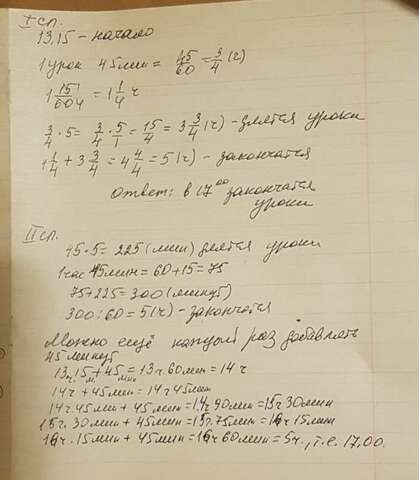 I сп.
13,15 - начало
1 урок 45 мин = 45/60 = 3/4 (ч)
1 15/60 = 1 1/4 ч
3/4 · 5 = 3/4 · 5/1 = 15/4 = 3 3/4 (ч) - длятся уроки
1 1/4 + 3 3/4 = 4 4/4 = 5 (ч) - закончатся
Ответ: в 17⁰⁰ закончатся
уроки
II сп.
45·5 = 225 (мин) длятся уроки
1 час 15 мин = 60+15 = 75
75+225 = 300 (минут)
300:60 = 5(ч) - закончатся
Можно ещё каждый раз добавлять
45 минут
13ч.15м + 45мин = 13ч.60мин = 14 ч
14ч + 45мин = 14ч 45мин
14ч.45мин + 45мин = 14ч 90мин = 15ч 30мин
15ч.30мин + 45мин = 15ч.75мин = 16ч 15мин
16ч.15мин + 45мин = 16ч 60мин = 5ч, т.е. 17.00.